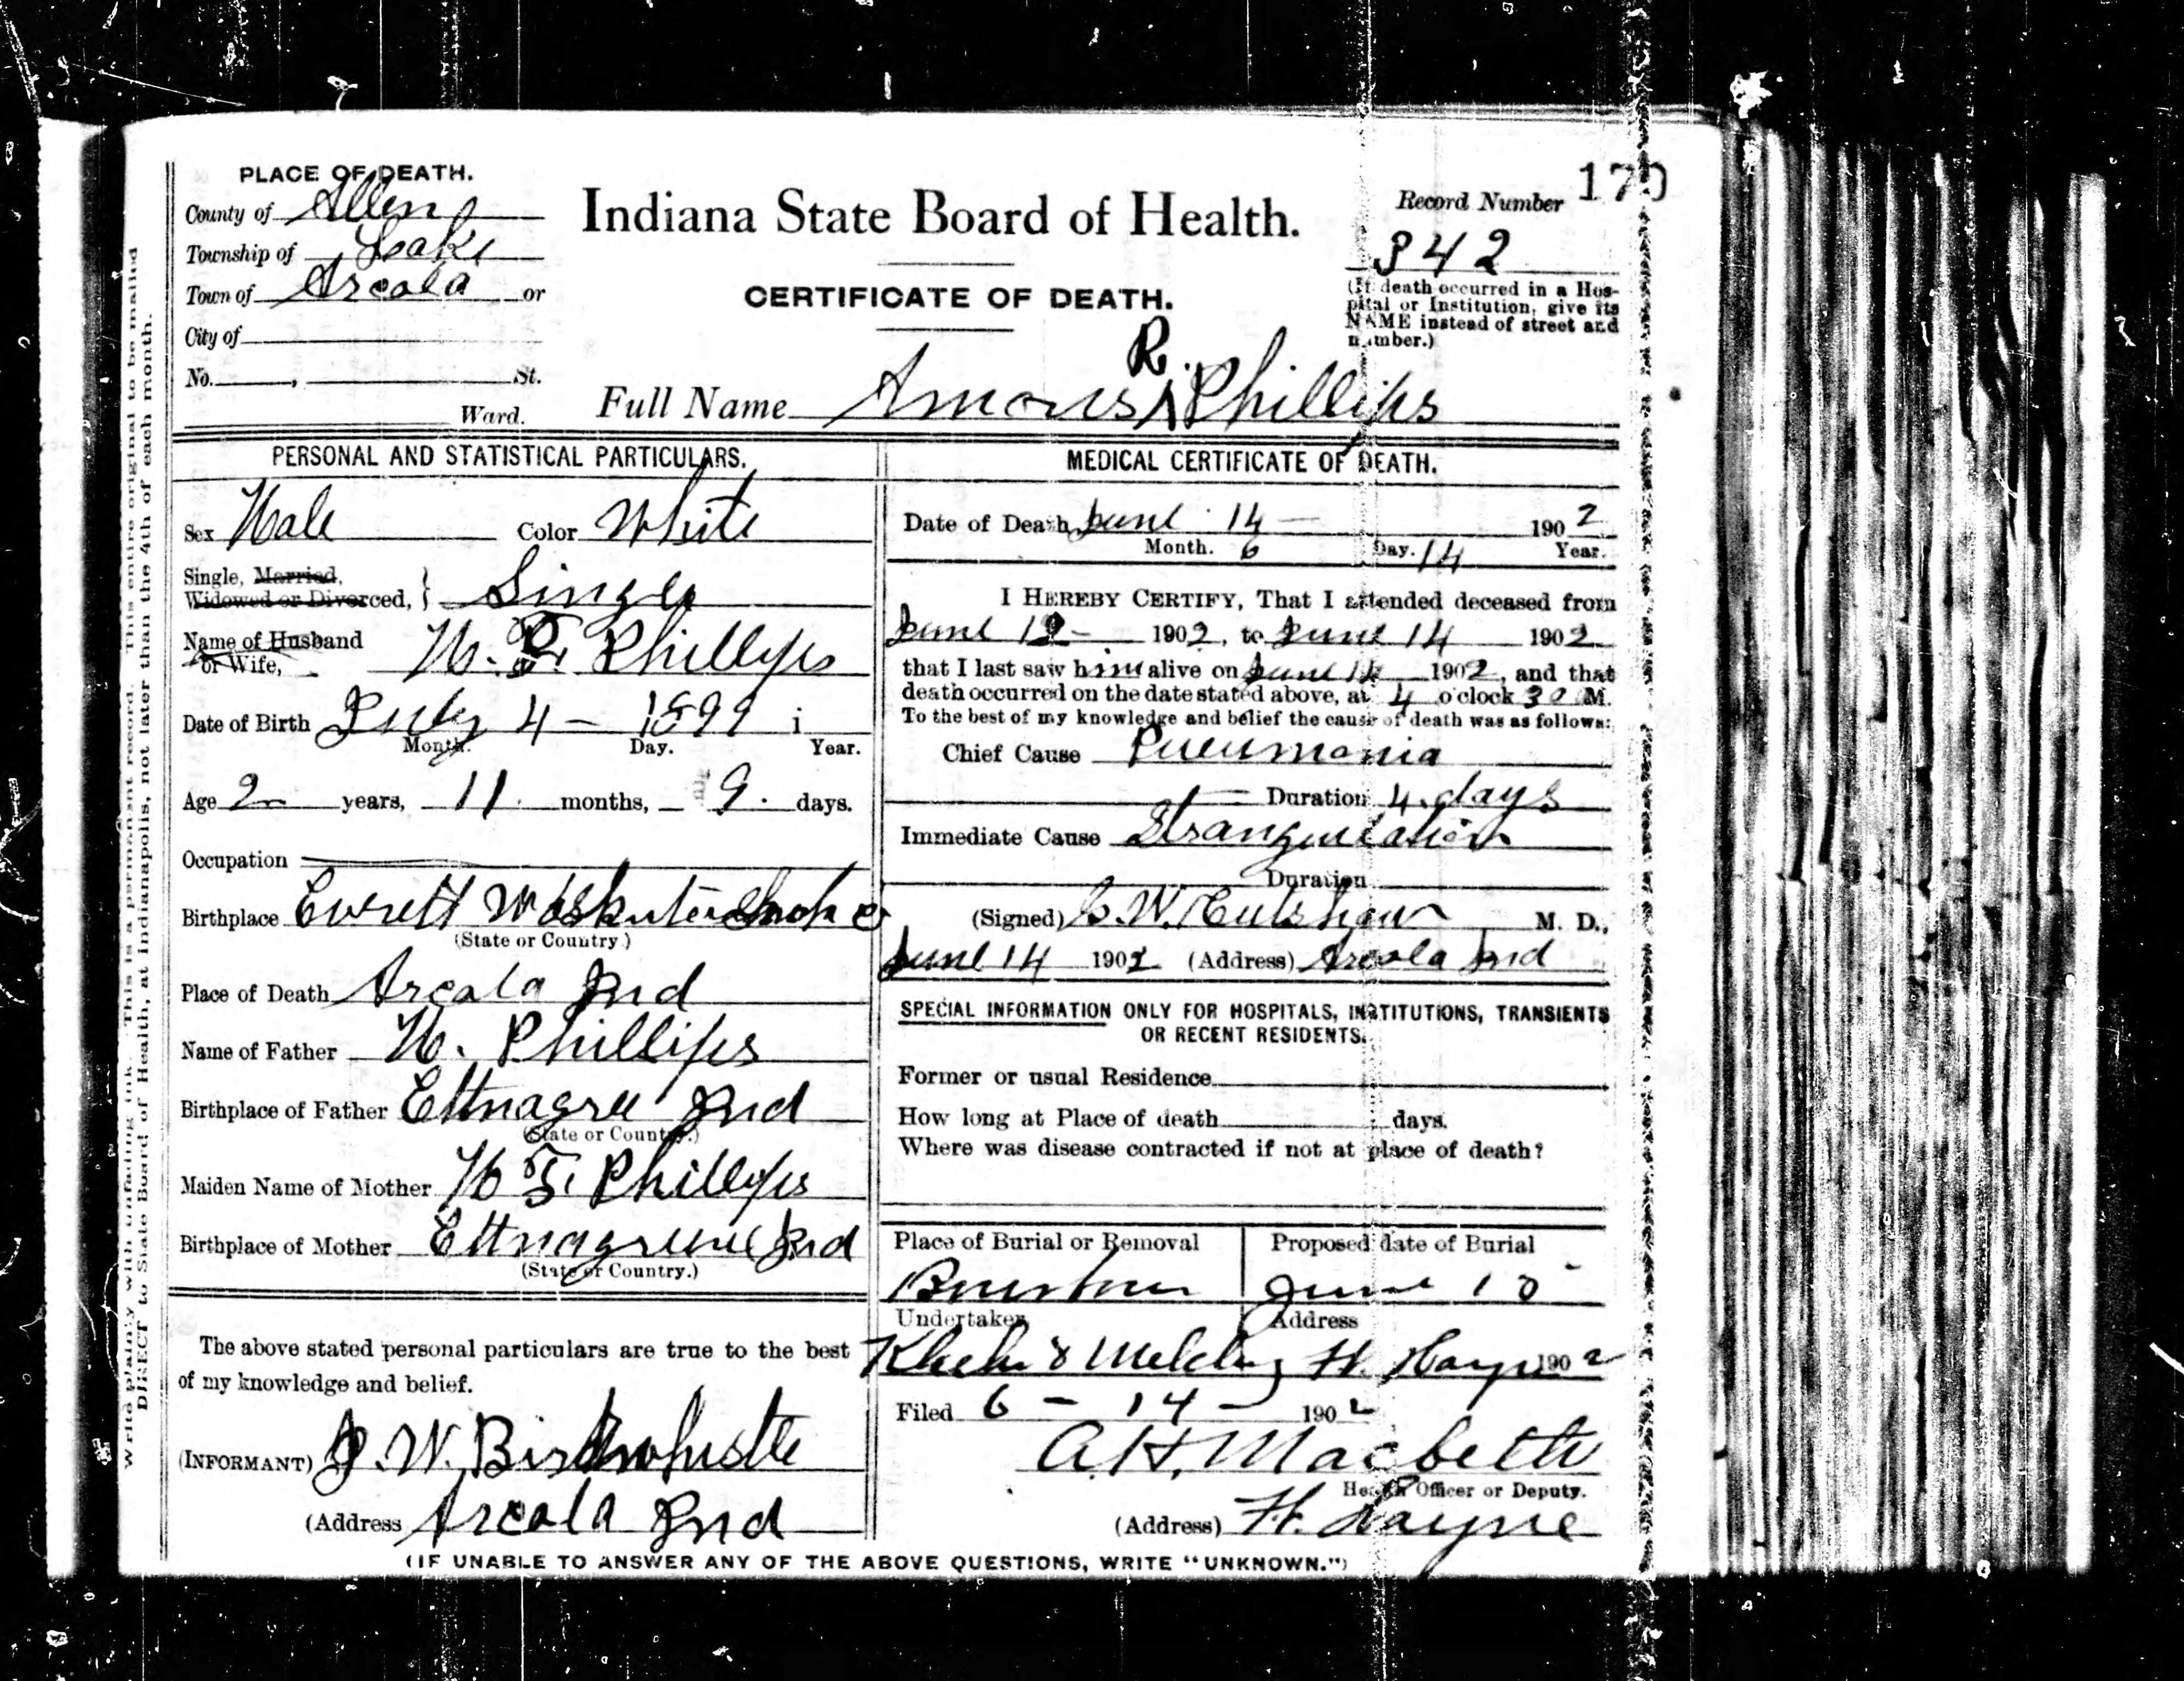 PLACE OF DEATH.
County of Allen
Township of Lake
Town of Arcola or
City of
No. , St.
Ward.
Indiana State Board of Health.
CERTIFICATE OF DEATH.
Record Number 170
342
(If death occurred in a Hos-
pital or Institution, give its
NAME instead of street and
number.)
R.
Full Name Amous Phillips
PERSONAL AND STATISTICAL PARTICULARS.
Sex Male Color White
Single, Married,
Widowed or Divorced, } Single
Name of Husband
or Wife, Phillips
Date of Birth July 4 - 1899
Month. Day. Year.
Age 2 years, 11 months, 9. days.
Occupation
Birthplace Everett
(State or Country)
Place of Death Arcola Ind
Name of Father Phillips
Birthplace of Father Ettnagree Ind
(State or Country.)
Maiden Name of Mother Phillips
Birthplace of Mother Ettnagreene Ind
(State or Country.)
The above stated personal particulars are true to the best
of my knowledge and belief.
(INFORMANT) J. W. Birtwhistle
(Address Arcola Ind
MEDICAL CERTIFICATE OF DEATH.
Date of Death June 14 - 1902
Month. 6 Day. 14 Year.
I HEREBY CERTIFY, That I attended deceased from
June 12 - 1902, to June 14 1902
that I last saw him alive on June 14 1902, and that
death occurred on the date stated above, at 4 o'clock 30 M.
To the best of my knowledge and belief the cause of death was as follows:
Chief Cause Pneumonia
Duration 4 days
Immediate Cause Strangulation
Duration
(Signed) M. D.,
June 14 1902 (Address) Arcola Ind
SPECIAL INFORMATION ONLY FOR HOSPITALS, INSTITUTIONS, TRANSIENTS
OR RECENT RESIDENTS.
Former or usual Residence
How long at Place of death days.
Where was disease contracted if not at place of death?
Place of Burial or Removal
Proposed date of Burial
June 15
Undertaker Address
Ft. Wayne 1902
Filed 6 - 14 - 1902
A. H. Macbeth
Health Officer or Deputy.
(Address) Ft. Wayne
(IF UNABLE TO ANSWER ANY OF THE ABOVE QUESTIONS, WRITE "UNKNOWN.")
Write plainly with unfading ink. This is a permanent record. This entire original to be mailed
DIRECT to State Board of Health, at Indianapolis, not later than the 4th of each month.